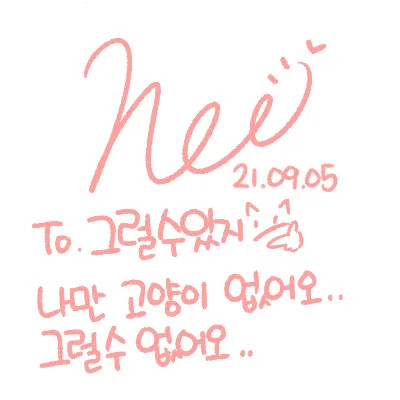 Nee
21.09.05
To. 그럴수있지
나만 고양이 없어오..
그럴수 없어오..